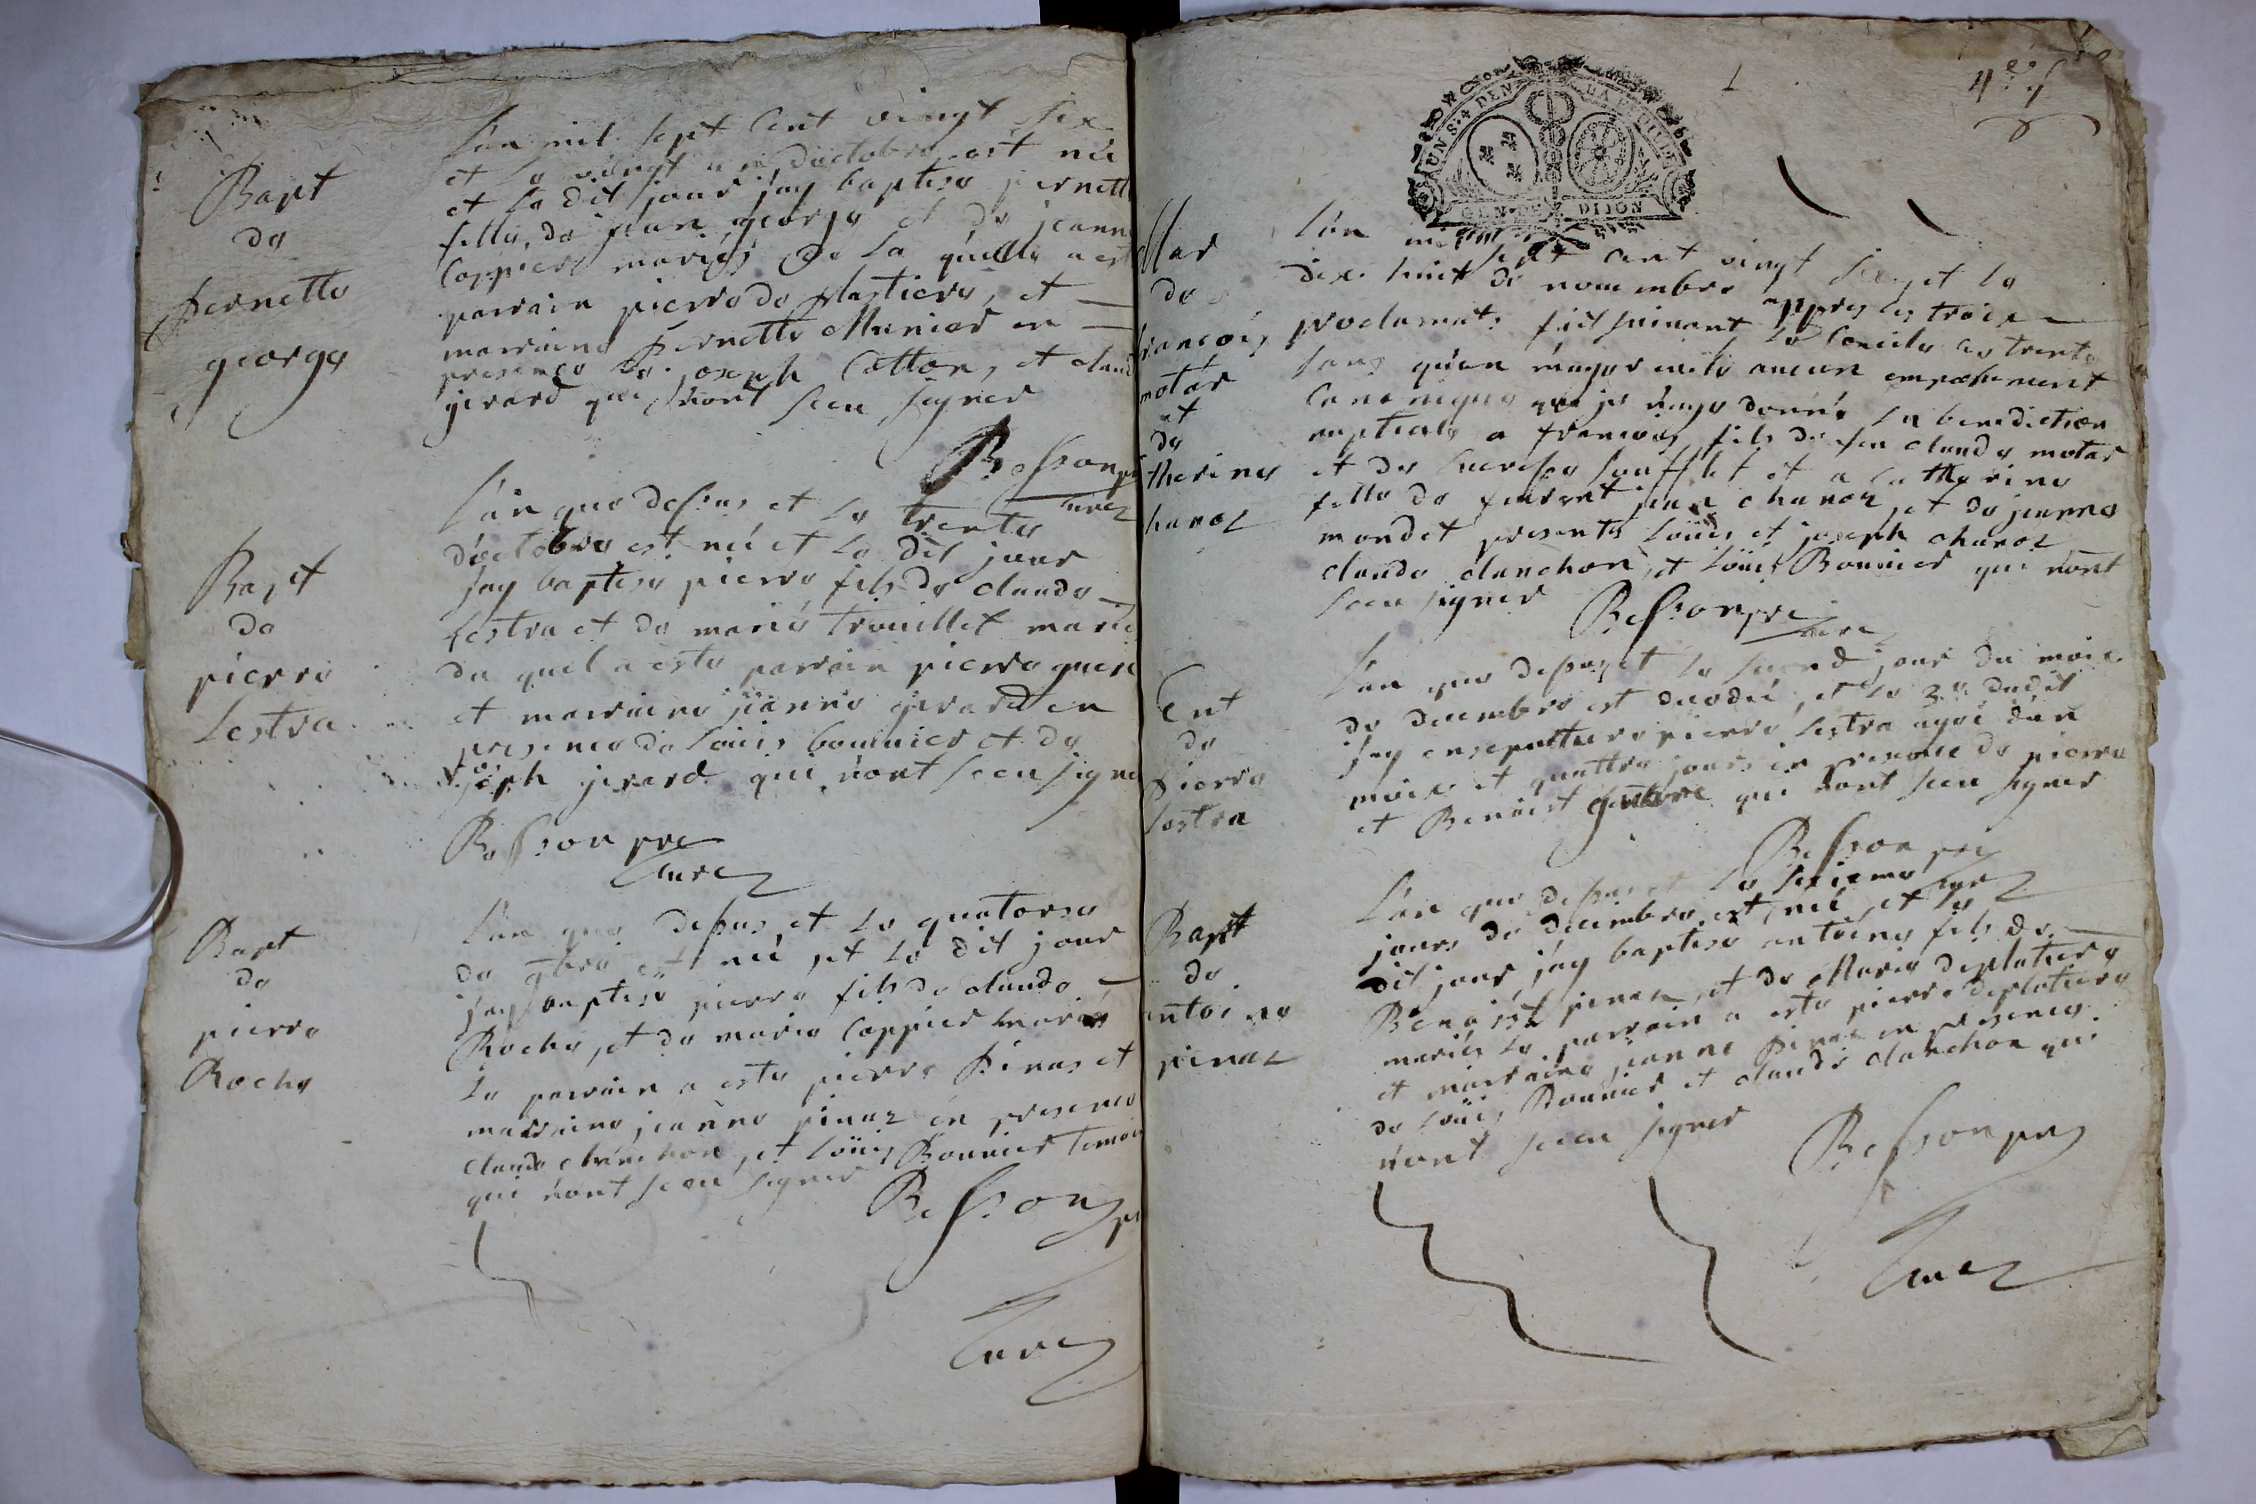 Bapt
de
pernette
george
L'an mil sept cent vingt six
et le vingt un d'octobre est née
et le dit jour j'ay baptisé pernette
fille de jean george et de jeanne
Coppier mariés de la quelle a esté
parrain pierre de plastiere, et
marraine pernette Munier en
presence de joseph Cotton, et claude
gerard qui n'ont sceu signer
Besson pre
curez
Bapt
de
pierre
Lestra
L'an que dessus et le trente
d'octobre est né et le dit jour
j'ay baptisé pierre fils de claude
Lestra et de marie trouillet mariés
du quel a esté parrain pierre
et marraine jeanne gerard en
presence de Loüis bonnier et de
joseph gerard qui n'ont sceu signer
Besson pre
curez
Bapt
de
pierre
Roche
L'an que dessus, et le quatorse
de 9bre est né et le dit jour
j'ay baptisé pierre fils de claude
Roche, et de marie Coppier mariés
le parrain a esté pierre pinas et
marraine jeanne pinaz en presence
claude clanchon, et Loüis Bonnier temoins
qui n'ont sceu signer
Besson pre
curez
1
GEN DE DIJON
Mar
de
françois
motar
et
de
therine
chanoz
L'an mil sept cent vingt six, et le
dix huit de novembre appres les trois
proclamats fait suivant le Concile de trente
sans qu'on m'aye revelé aucun empechement
Canonique que je n'aye donné la benediction
nuptiale a françois, fils de feu claude motar
et de Lucresse soufflet et a Catherine
fille de pierre chanoz et de jeanne
mondet presents Loüis et joseph chanoz
claude clanchon, et Loüis Bonnier qui n'ont
sceu signer
Besson pre
curez
Ent
de
pierre
Lestra
L'an que dessus et le second jour du mois
de decembre est decedé, et le 3e dudit
j'ay ensepulturé pierre Lestra agé d'un
mois et quattre jours en presence de pierre
et Benoist qui n'ont sceu signer
Besson pre
curez
Bapt
de
antoine
pinaz
L'an que dessus et le seixieme
jours de decembre est né et le
dit jour j'ay baptisé antoine fils de
Benoist pinaz, et de Marie deplatiere
mariés le parrain a esté pierre deplatiere
et marraine jeanne pinaz en presence
de Loüis Bonnier et claude clanchon qui
n'ont sceu signer
Besson pre
curez